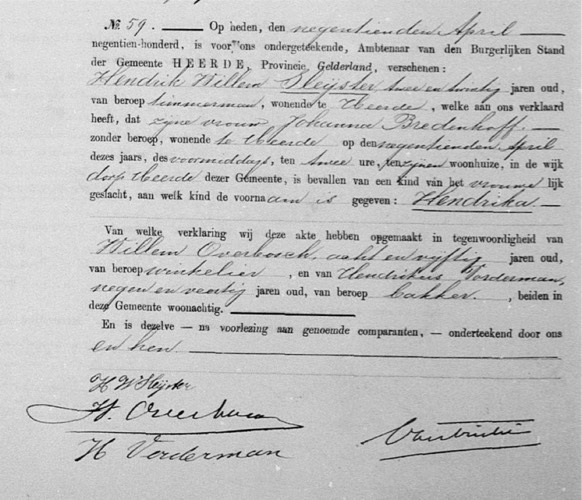 No 59. Op heden, den negentienden April
negentien-honderd, is voor ons ondergeteekende, Ambtenaar van den Burgerlijken Stand
der Gemeente HEERDE, Provincie Gelderland, verschenen:
Hendrik Willem Sleijster twee en twintig jaren oud,
van beroep timmerman, wonende te Heerde, welke aan ons verklaard
heeft, dat zijne vrouw Johanna Bredenhoff.—
zonder beroep, wonende te Heerde op den negentienden April
dezes jaars, des voormiddags, ten twee ure, ten zijnen woonhuize, in de wijk
dorp Heerde dezer Gemeente, is bevallen van een kind van het vrouwelijk
geslacht, aan welk kind de voornaam is gegeven: Hendrika—
Van welke verklaring wij deze akte hebben opgemaakt in tegenwoordigheid van
Willem Overbosch, acht en vijftig jaren oud,
van beroep winkelier, en van Hendrikus Vorderman,
negen en veertig jaren oud, van beroep bakker., beiden in
deze Gemeente woonachtig.
En is dezelve — na voorlezing aan genoemde comparanten, — onderteekend door ons
en hen
H W Sleijster
W. Overbosch
H Vorderman